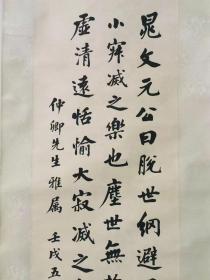 晁文元公曰脫世網避
小寂滅之樂也塵世無
虛清遠恬愉大寂滅之
仲卿先生雅属 壬戌五